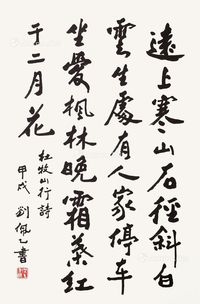 遠上寒山石徑斜白
雲生處有人家停車
坐愛楓林晚霜葉紅
于二月花
杜牧山行詩
甲戌 劉佩書